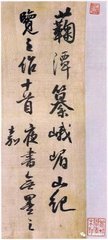 蘜潭纂峨嵋山紀
覽之十首夜書無墨之